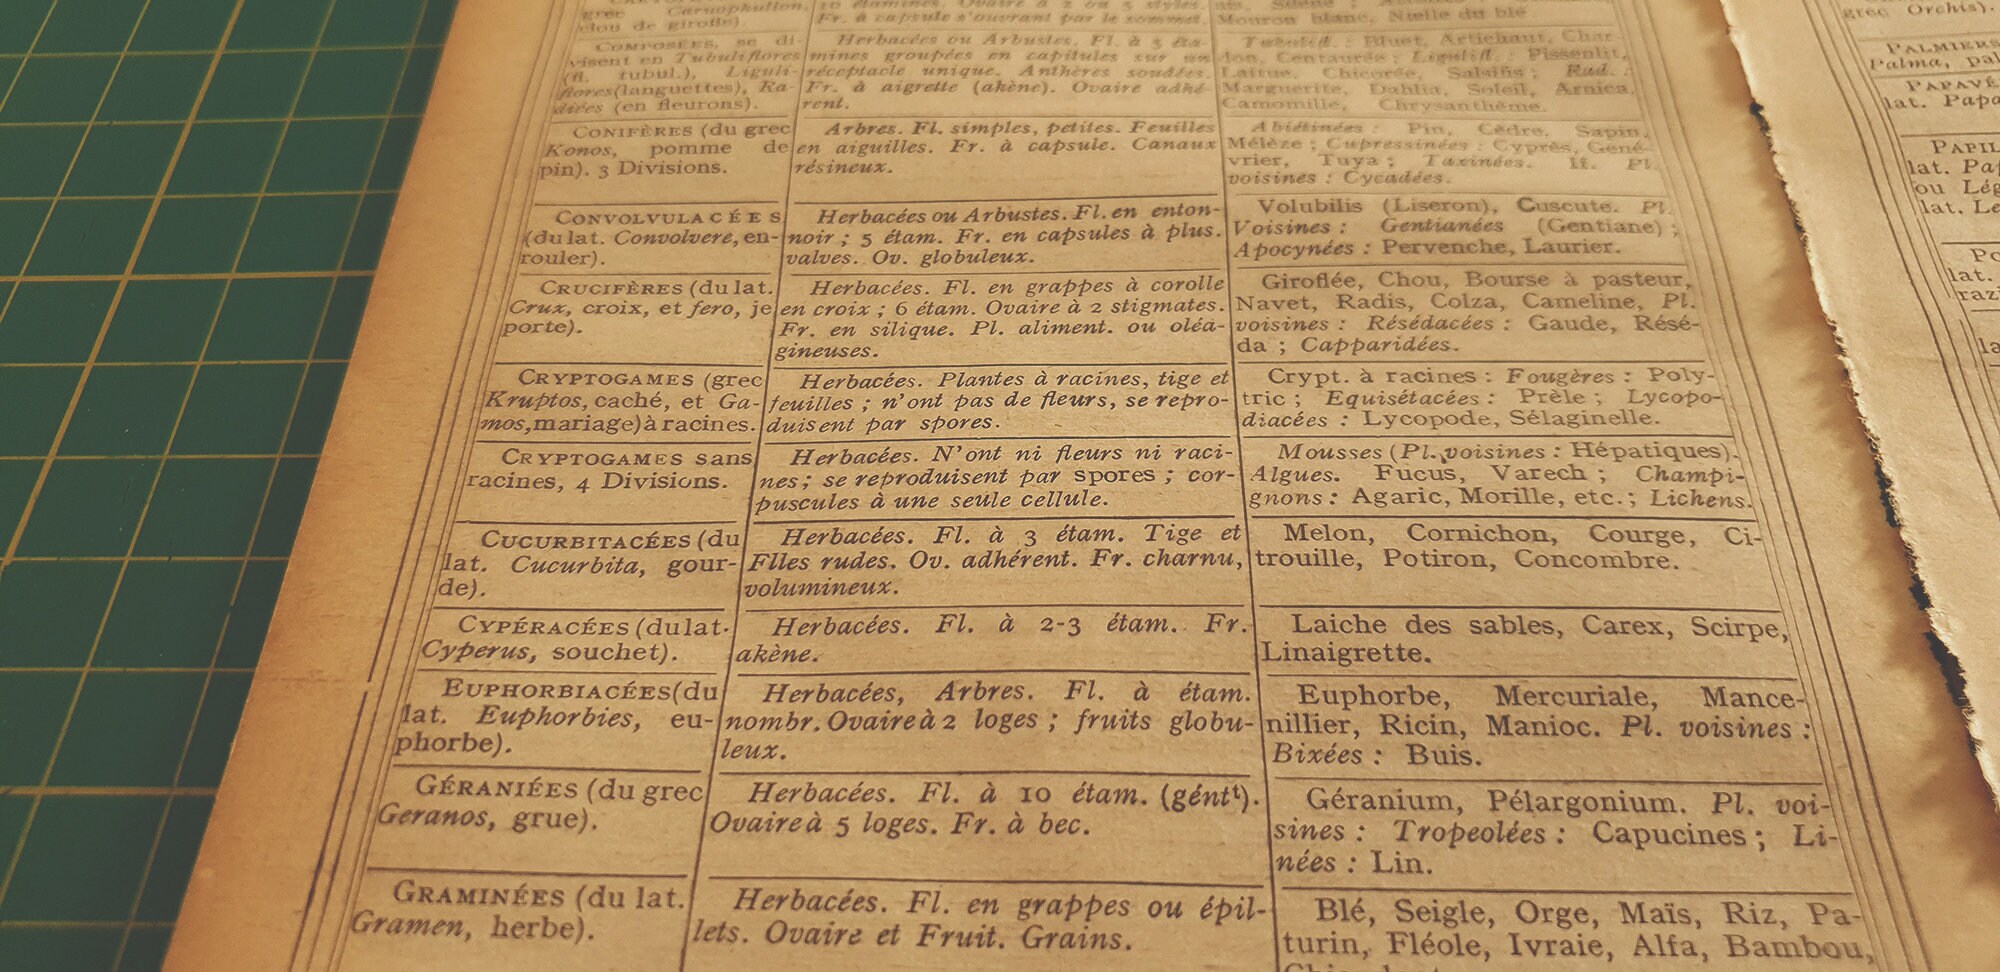 grec Caryophullon,
clou de girofle).
10 étamines. Ovaire à 2 ou 5 styles.
Fr. à capsule s'ouvrant par le sommet.
Mouron blanc, Nielle du blé
COMPOSÉES, se di-
visent en Tubuliflores
(fl. tubul.), Liguli-
flores (languettes), Ra-
diées (en fleurons).
Herbacées ou Arbustes. Fl. à 5 éta-
mines groupées en capitules sur un
réceptacle unique. Anthères soudées.
Fr. à aigrette (akène). Ovaire adhé-
rent.
Tubulifl. : Bluet, Artichaut, Char-
don, Centaurée ; Ligulifl. : Pissenlit,
Laitue, Chicorée, Salsifis ; Rad. :
Marguerite, Dahlia, Soleil, Arnica,
Camomille, Chrysanthème.
CONIFÈRES (du grec
Konos, pomme de
pin). 3 Divisions.
Arbres. Fl. simples, petites. Feuilles
en aiguilles. Fr. à capsule. Canaux
résineux.
Abiétinées : Pin, Cèdre, Sapin,
Mélèze ; Cupressinées : Cyprès, Gené-
vrier, Tuya ; Taxinées. If. Pl.
voisines : Cycadées.
CONVOLVULACÉES
(du lat. Convolvere, en-
rouler).
Herbacées ou Arbustes. Fl. en enton-
noir ; 5 étam. Fr. en capsules à plus.
valves. Ov. globuleux.
Volubilis (Liseron), Cuscute. Pl.
Voisines : Gentianées (Gentiane) ;
Apocynées : Pervenche, Laurier.
CRUCIFÈRES (du lat.
Crux, croix, et fero, je
porte).
Herbacées. Fl. en grappes à corolle
en croix ; 6 étam. Ovaire à 2 stigmates.
Fr. en silique. Pl. aliment. ou oléa-
gineuses.
Giroflée, Chou, Bourse à pasteur,
Navet, Radis, Colza, Cameline, Pl.
voisines : Résédacées : Gaude, Résé-
da ; Capparidées.
CRYPTOGAMES (grec
Kruptos, caché, et Ga-
mos, mariage) à racines.
Herbacées. Plantes à racines, tige et
feuilles ; n'ont pas de fleurs, se repro-
duisent par spores.
Crypt. à racines : Fougères : Poly-
tric ; Equisétacées : Prèle ; Lycopo-
diacées : Lycopode, Sélaginelle.
CRYPTOGAMES sans
racines, 4 Divisions.
Herbacées. N'ont ni fleurs ni raci-
nes ; se reproduisent par spores ; cor-
puscules à une seule cellule.
Mousses (Pl. voisines : Hépatiques).
Algues. Fucus, Varech ; Champi-
gnons : Agaric, Morille, etc. ; Lichens.
CUCURBITACÉES (du
lat. Cucurbita, gour-
de).
Herbacées. Fl. à 3 étam. Tige et
Flles rudes. Ov. adhérent. Fr. charnu,
volumineux.
Melon, Cornichon, Courge, Ci-
trouille, Potiron, Concombre.
CYPÉRACÉES (du lat.
Cyperus, souchet).
Herbacées. Fl. à 2-3 étam. Fr.
akène.
Laiche des sables, Carex, Scirpe,
Linaigrette.
EUPHORBIACÉES (du
lat. Euphorbies, eu-
phorbe).
Herbacées, Arbres. Fl. à étam.
nombr. Ovaire à 2 loges ; fruits globu-
leux.
Euphorbe, Mercuriale, Mance-
nillier, Ricin, Manioc. Pl. voisines :
Bixées : Buis.
GÉRANIÉES (du grec
Geranos, grue).
Herbacées. Fl. à 10 étam. (génᵗᵗ).
Ovaire à 5 loges. Fr. à bec.
Géranium, Pélargonium. Pl. voi-
sines : Tropeolées : Capucines ; Li-
nées : Lin.
GRAMINÉES (du lat.
Gramen, herbe).
Herbacées. Fl. en grappes ou épil-
lets. Ovaire et Fruit. Grains.
Blé, Seigle, Orge, Maïs, Riz, Pa-
turin, Fléole, Ivraie, Alfa, Bambou,
grec Orchis).
PALMIERS
Palma, pal
PAPAVÉ
lat. Papa
PAPIL
lat. Pap
ou Lég
lat. Le
Po
lat.
razi
la